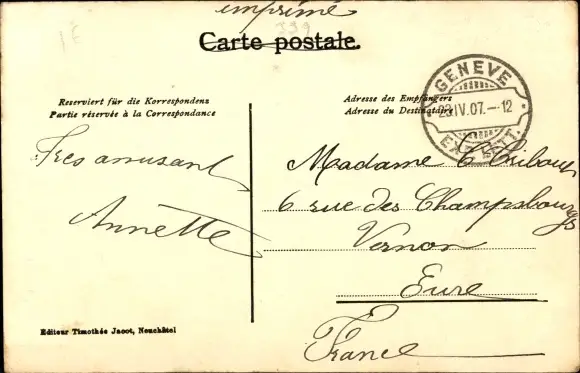 imprimé
339
Carte postale.
Reserviert für die Korrespondenz
Partie réservée à la Correspondance
Adresse des Empfängers
Adresse du Destinataire
GENEVE
23 IV. 07. — 12
Très amusant
Annette
Madame
6 rue des Champsbourgs
Vernon
Eure
France
Editeur Timothée Jacot, Neuchâtel